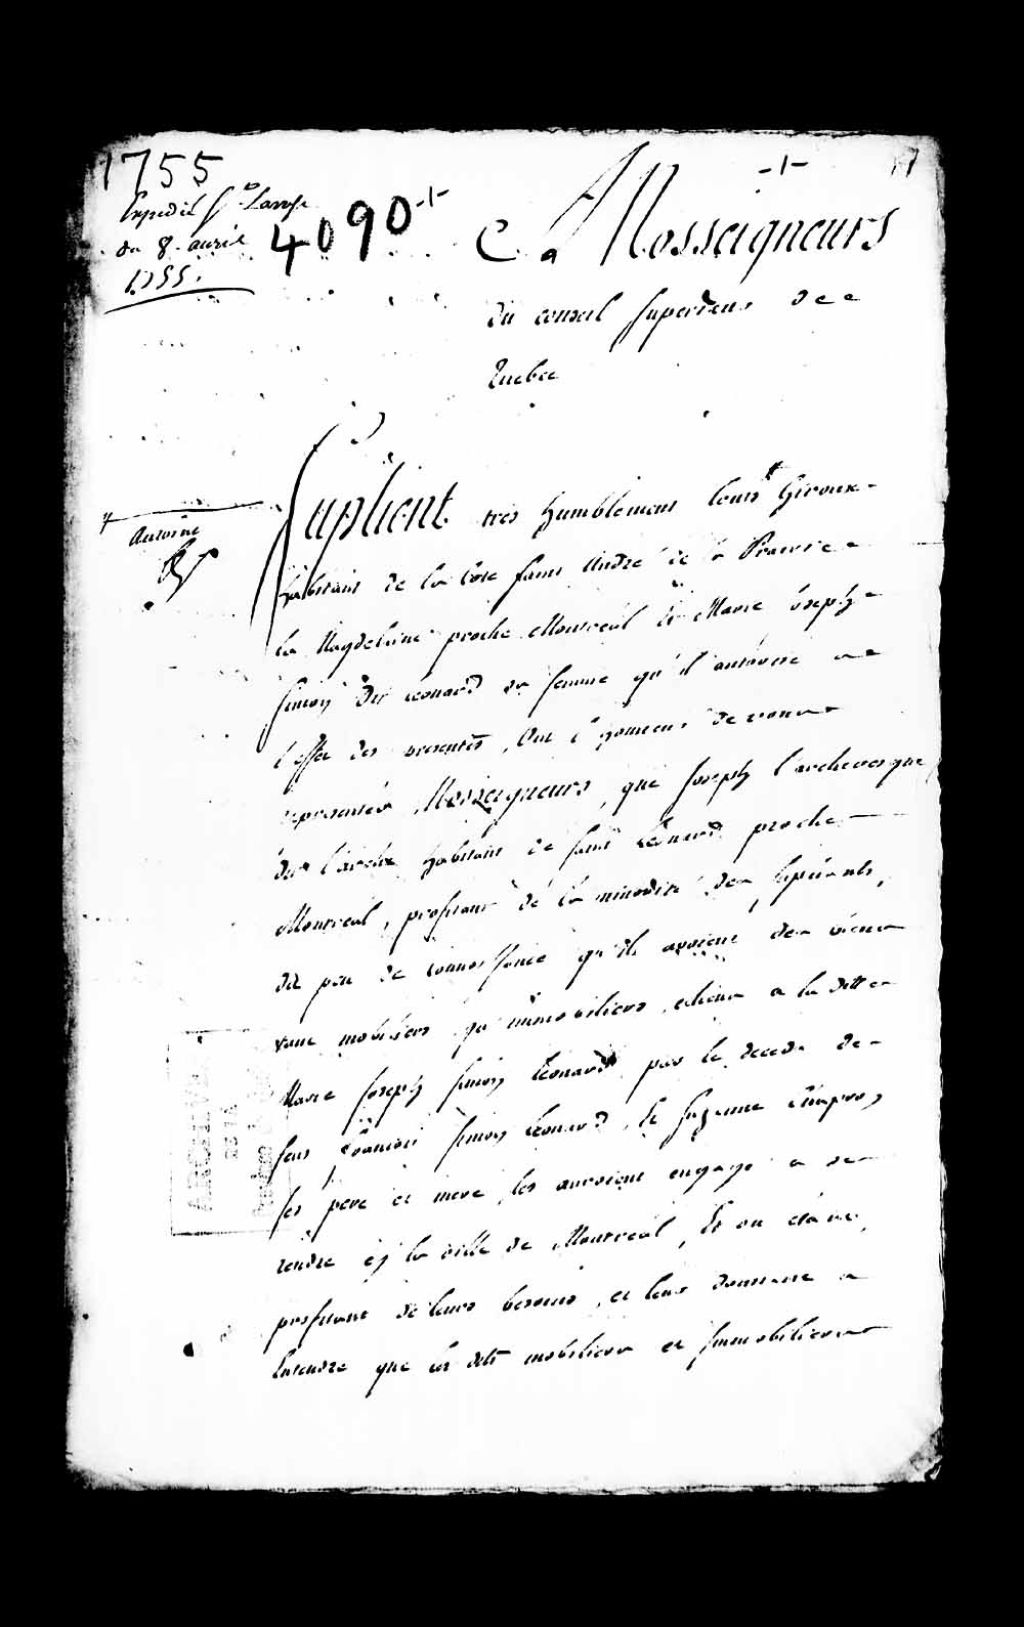 1755
Expedié
du 8. avril
1755.
4090
17
A Nosseigneurs
du conseil superieur de
Quebec
Antoine
Suplient tres humblement Louis Giroux
habitant de la Coste saint André de la Prairie
la Magdelaine proche Montreal Et Marie Joseph
Simon dit Leonard sa femme qu'il autorise a
l'effet des presentes, Ont l'honneur de vous
representer Nosseigneurs, que Joseph l'archevesque
dit habitant de saint Leonard proche
Montreal, profitant de la minorité des supliants,
du peu de connoissance qu'ils avoient des biens
tant mobiliers qu'immobiliers, echeus a la ditte
Marie Joseph Simon Leonard par le deceds de
feus François Simon Leonard, Et Suzanne
ses pere et mere, les auroient engagé a se
rendre en la ville de Montreal, Et ou etant,
profitant de leurs besoins, et leur donnant a
Entendre que les dits mobiliers et Immobiliers
ARCHIVES
DE LA